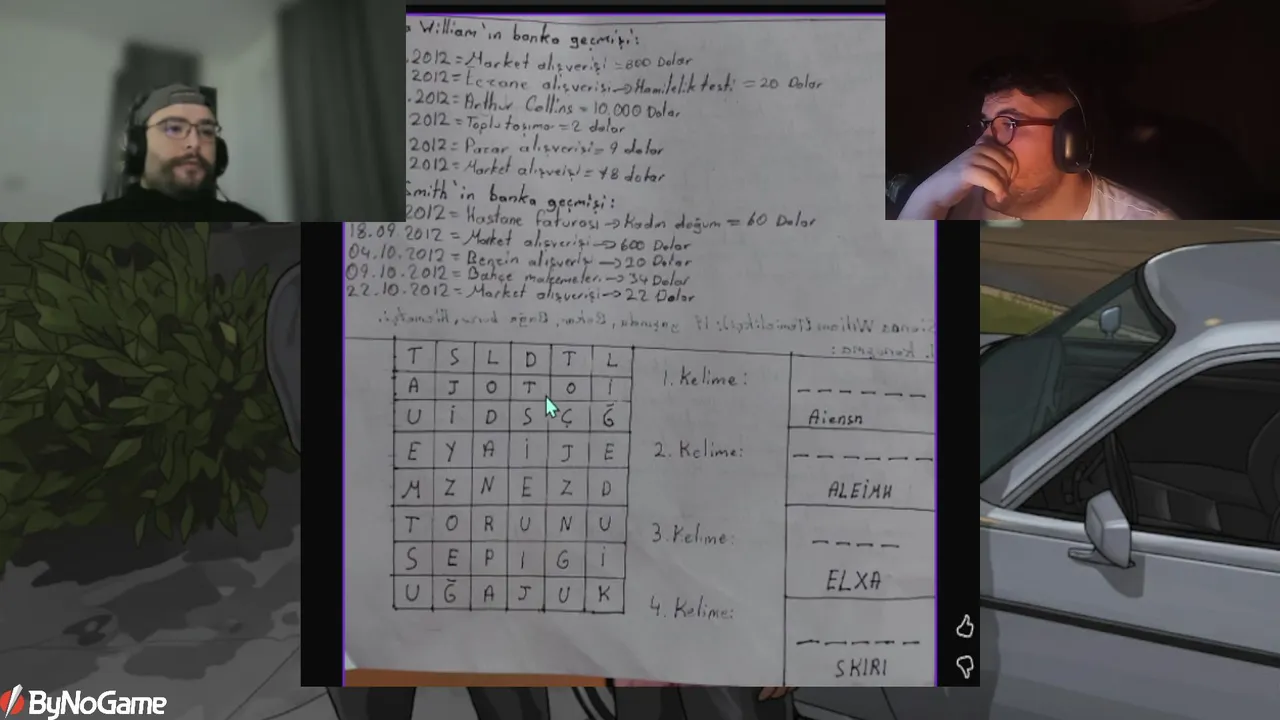 William'ın banka geçmişi:
.2012= Market alışverişi =800 Dolar
2012= Eczane alışverişi→Hamilelik testi = 20 Dolar
.2012= Arthur Collins = 10.000 Dolar
2012= Toplu taşıma = 2 dolar
2012= Pazar alışverişi= 9 dolar
2012= Market alışveişi = 48 dolar
Smith'in banka geçmişi:
2012= Hastane faturası → Kadın doğum = 60 Dolar
18.09.2012= Market alışverişi→600 Dolar
04.10.2012= Benzin alışverişi →20 Dolar
09.10.2012= Bahçe malzemeleri→34 Dolar
22.10.2012= Market alışverişi→22 Dolar
T S L D T L
A J O T O İ
U İ D S Ç Ğ
E Y A İ J E
M Z N E Z D
T O R U N U
S E P I G İ
U Ğ A J U K
1. Kelime:
Aiensn
2. Kelime:
ALEİMH
3. Kelime:
ELXA
4. Kelime:
SKIRI
ByNoGame